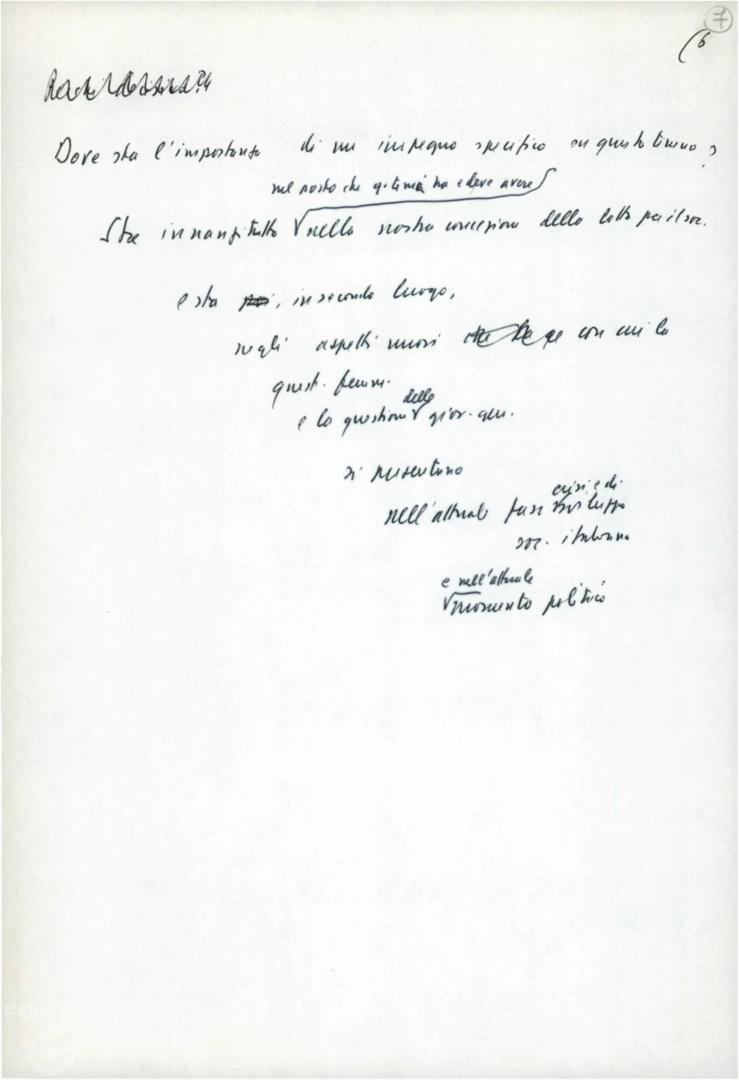 7
(6
Dove sta l'importanza di un impegno specifico su questo terreno?
nel posto che q. temi ha e deve avere
Sta innanzi tutto nella nostra concezione della lotta per il soc.
e sta poi, in secondo luogo,
negli aspetti nuovi che con cui la
quest. femm.
e la questione delle giov. gen.
si presentano
nell'attuale fase crisi e di sviluppo
soc. italiana
e nell'attuale
momento politico